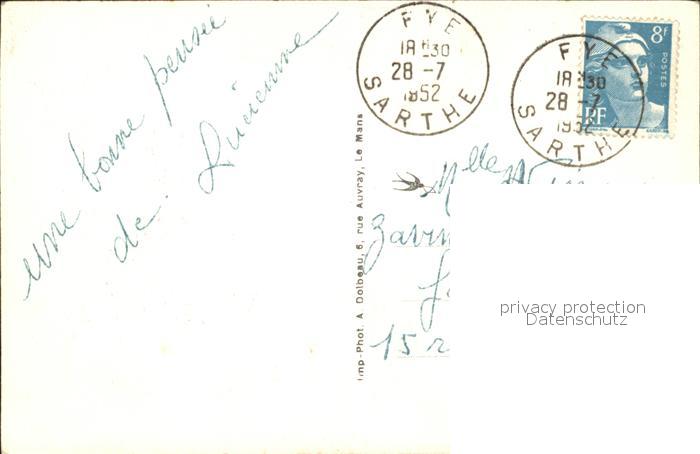 une bonne pensée
de Lucienne
Imp-Phot. A Dolbeau, 6, rue Auvray, Le Mans
FYE
18 30
28 -7
1952
SARTHE
FYE
18 30
28 -7
1952
SARTHE
8f
POSTES
RF
Mlle
15
privacy protection
Datenschutz